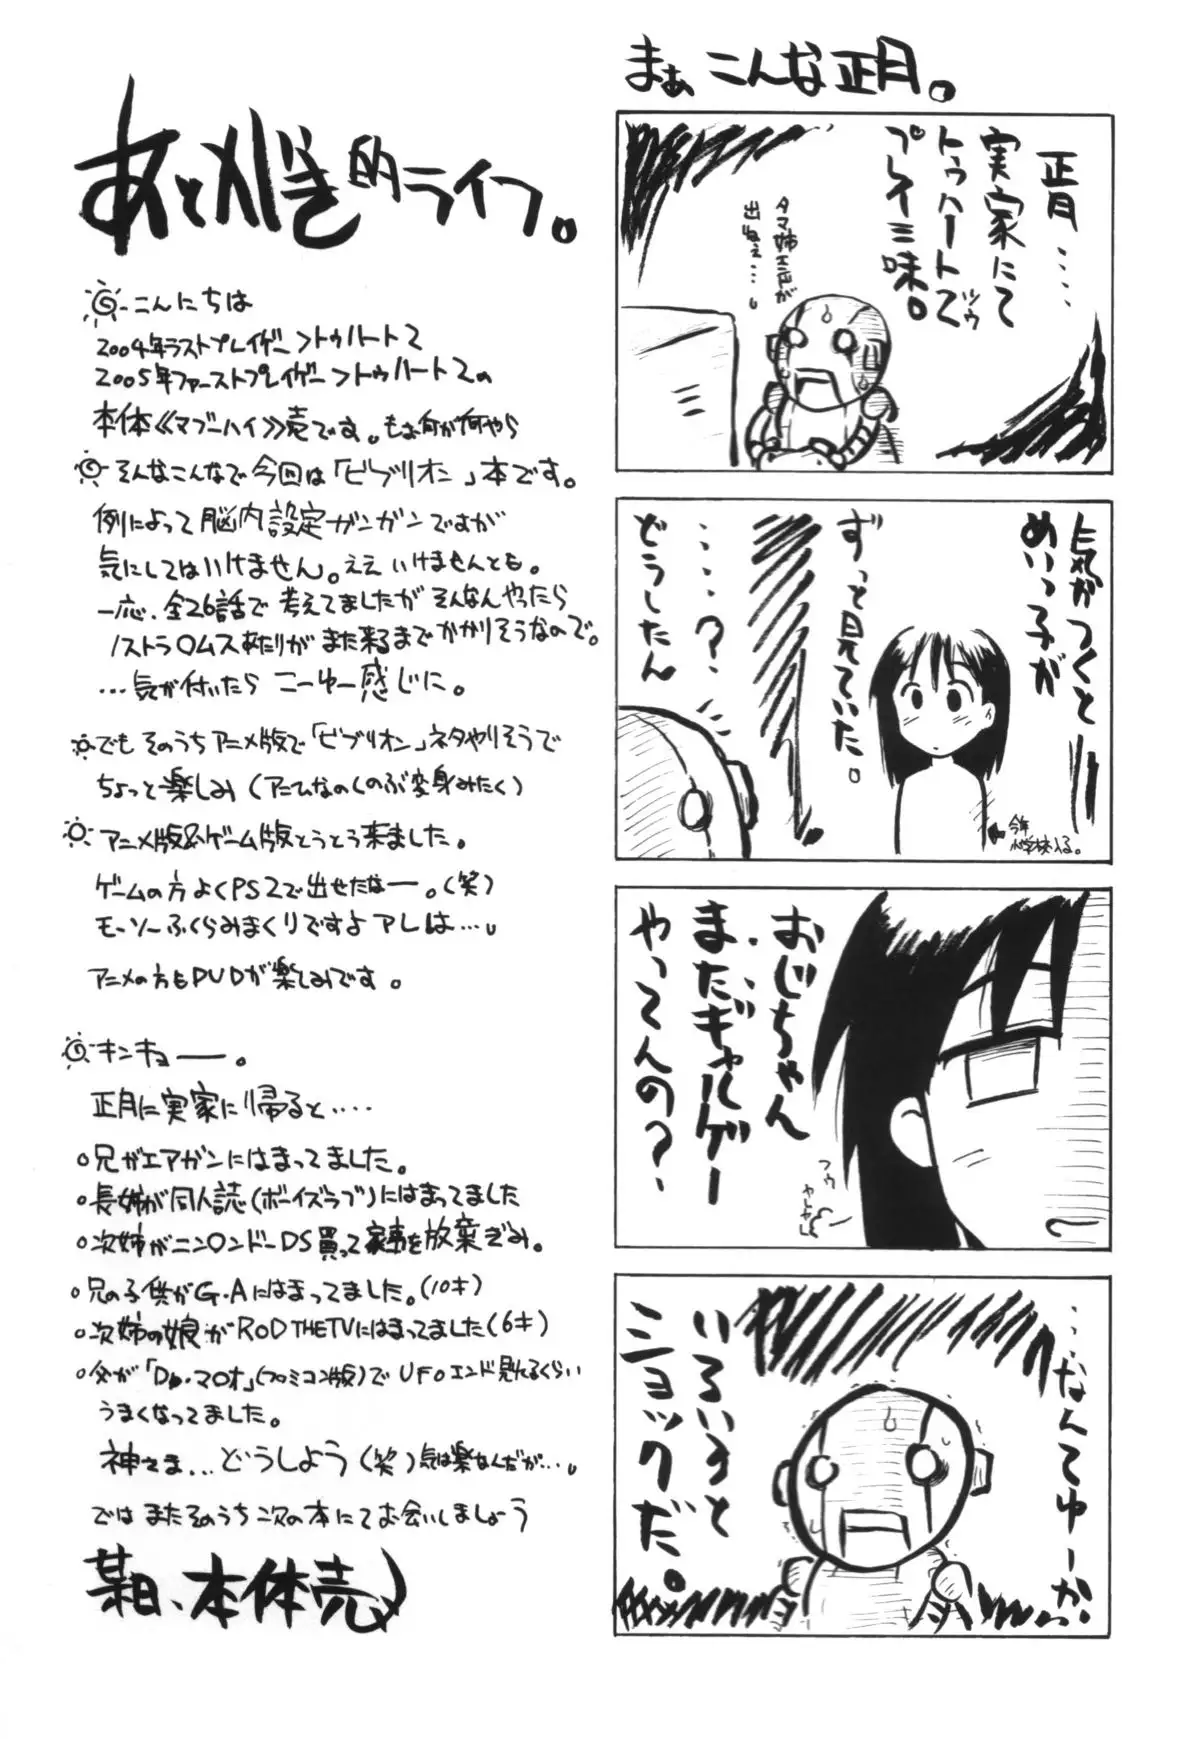 まぁ こんな正月。
正月‥‥
実家にて
トゥハート2(ツゥ)
プレイ三味。
タマ姉エンドが
出ねぇ…。
気がつくと――
めいっ子が
ずっと見ていた。
‥‥?
どうしたん
今年
小学校入る。
おじちゃん
まだギャルゲー
やってんの?
フゥ
ヤレヤレ
‥‥なんてゆーか
いろいろと
ショックだ。
あとがき的ライフ。
こんにちは
2004年ラストプレイゲー>トゥハート2
2005年ファーストプレイゲー>トゥハート2の
本体《マブーハイ》売です。もぉ何が何やら
そんなこんなで今回は「ビブリオン」本です。
例によって脳内設定ガンガンですが
気にしてはいけません。ええ いけませんとも。
一応、全26話で考えてましたがそんなんやったら
ノストラ○ムスあたりがまた来るまでかかりそうなので。
…気が付いたら こーゆー感じに。
でもそのうちアニメ版で「ビブリオン」ネタやりそうで
ちょっと楽しみ(アニムなのくのぶ変身みたく)
アニメ版&ゲーム版とうとう来ました。
ゲームの方よくPS2で出せたなー。(笑)
モーソーふくらみまくりですよアレは…。
アニメの方もDVDが楽しみです。
キンキョー。
正月に実家に帰ると‥‥
○兄がエアガンにはまってました。
○長姉が同人誌(ボーイズラブ)にはまってました
○次姉がニン○ンドーDS買って家事を放棄ぎみ。
○兄の子供がG・Aにはまってました。(10才)
○次姉の娘がROD THE TVにはまってました(6才)
○父が「Dr.マ○オ」(フ○ミコン版)でUFOエンド見れるくらい
うまくなってました。
神さま…どうしよう(笑)気は楽なんだが…。
ではまたそのうち次の本にてお会いしましょう
某日、本体売